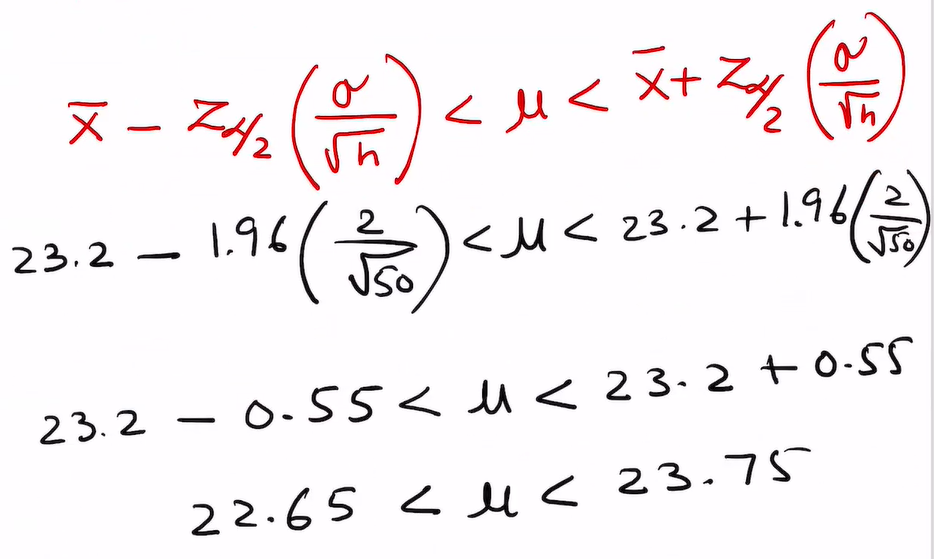 x̄ − Z_{α/2} (σ/√n) < μ < x̄ + Z_{α/2} (σ/√n)
23.2 − 1.96 (2/√50) < μ < 23.2 + 1.96 (2/√50)
23.2 − 0.55 < μ < 23.2 + 0.55
22.65 < μ < 23.75